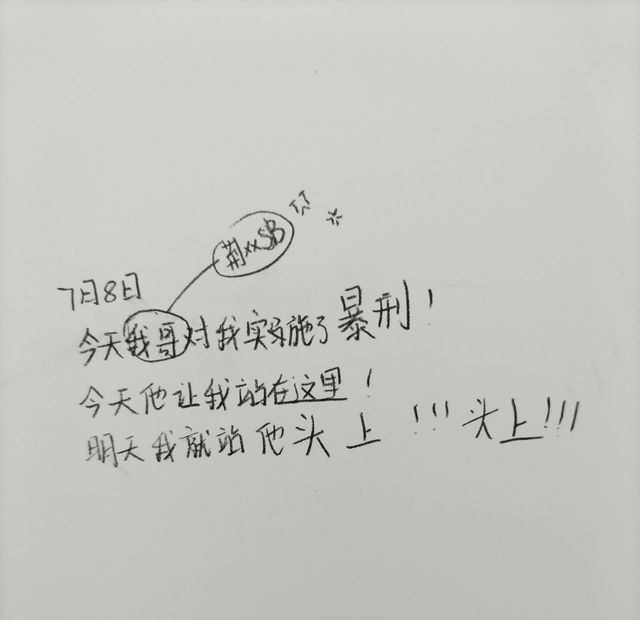 荆××SB
7月8日
今天我哥对我实施了暴刑！
今天他让我站在这里！
明天我就站他头上！！！头上！！！